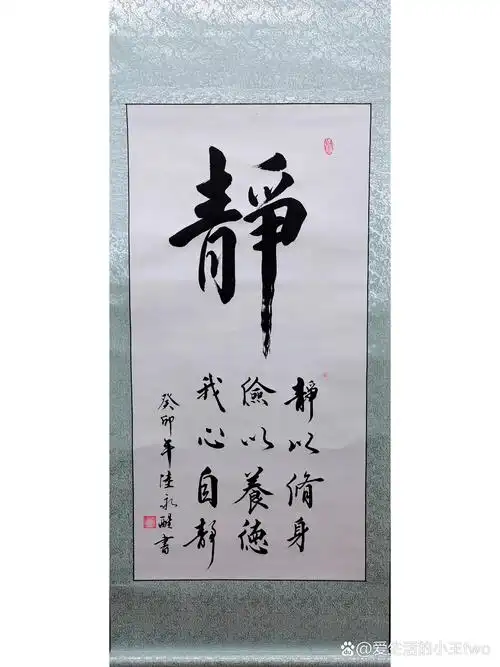 靜
靜以脩身
儉以養徳
我心自靜
癸卯年陸永醒書
@爱生活的小王two